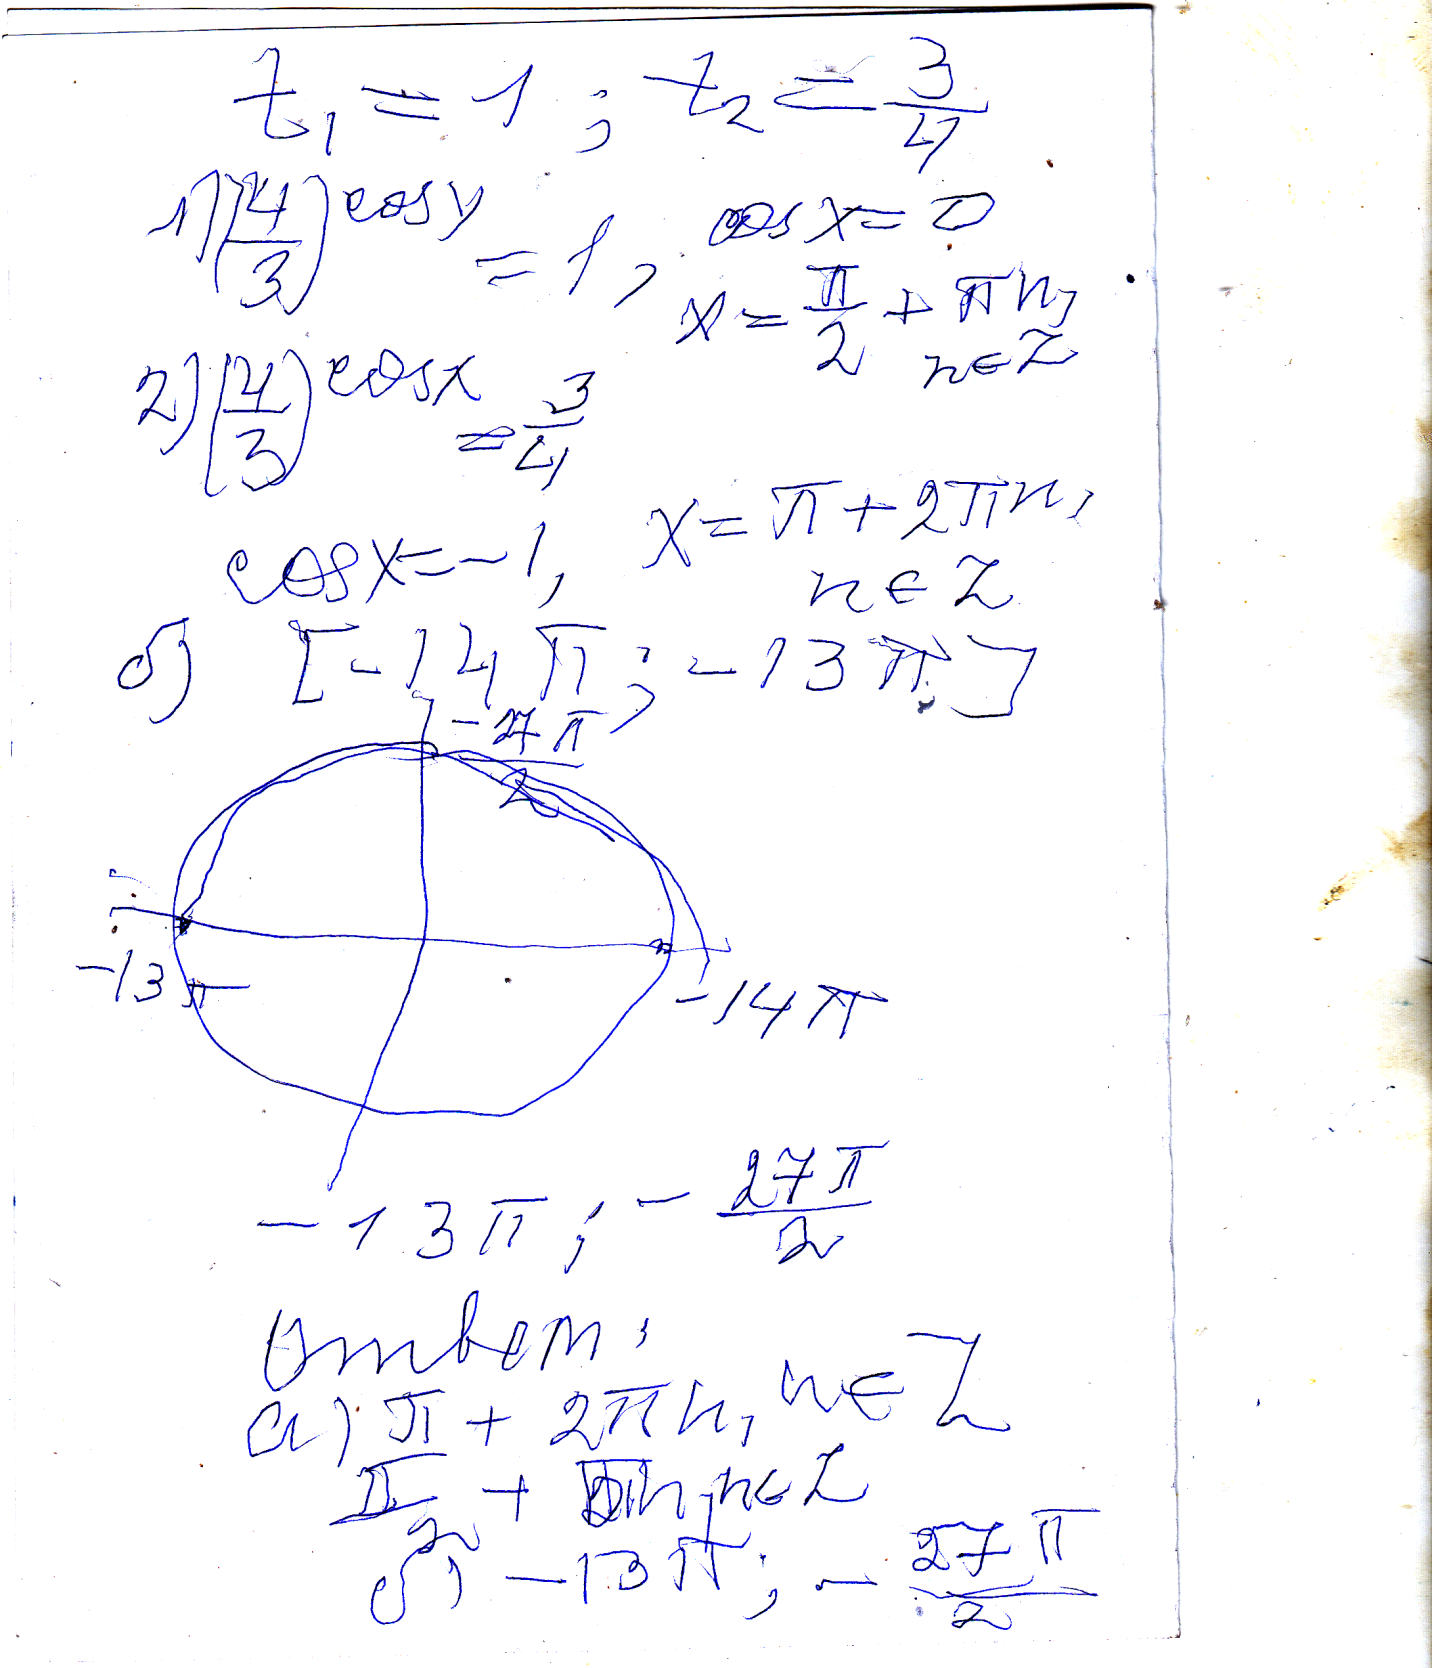 t₁ = 1 ; t₂ = 3/4
1) (4/3)^cosy = 1, cosx = 0
x = π/2 + πn, n∈Z
2) (4/3)^cosx = 3/4
cosx = -1, x = π + 2πn, n∈Z
б) [-14π; -13π]
-27π/2
-13π
-14π
-13π; -27π/2
Ответ:
а) π + 2πn, n∈Z
π/2 + πn, n∈Z
б) -13π; -27π/2